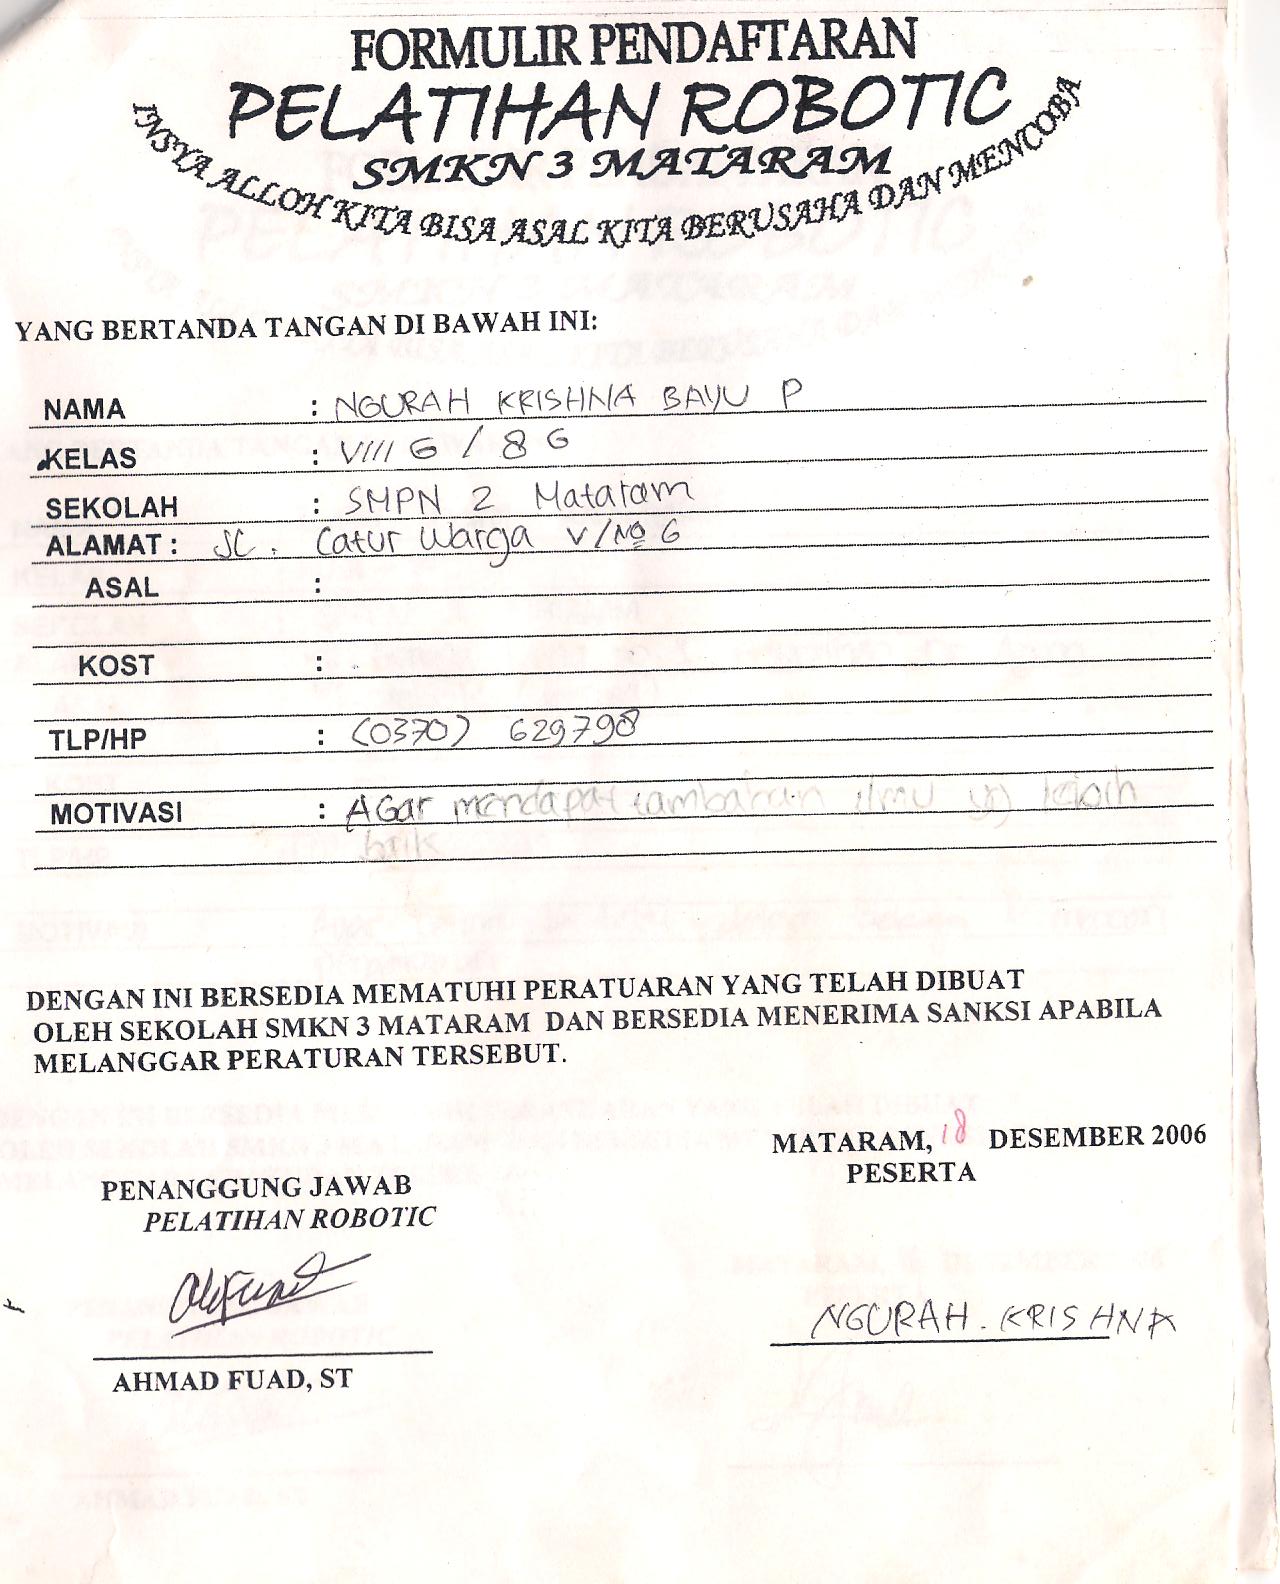 FORMULIR PENDAFTARAN
PELATIHAN ROBOTIC
SMKN 3 MATARAM
INSYA ALLOH KITA BISA ASAL KITA BERUSAHA DAN MENCOBA
YANG BERTANDA TANGAN DI BAWAH INI:
NAMA : NGURAH KRISHNA BAYU P
KELAS : VIII G / 8 G
SEKOLAH : SMPN 2 Mataram
ALAMAT : JL. Catur Warga V/No 6
ASAL :
KOST :
TLP/HP : (0370) 629798
MOTIVASI : AGar mendapat tambahan ilmu yg lebih
baik
DENGAN INI BERSEDIA MEMATUHI PERATUARAN YANG TELAH DIBUAT
OLEH SEKOLAH SMKN 3 MATARAM DAN BERSEDIA MENERIMA SANKSI APABILA
MELANGGAR PERATURAN TERSEBUT.
MATARAM, 18 DESEMBER 2006
PESERTA
PENANGGUNG JAWAB
PELATIHAN ROBOTIC
NGURAH. KRISHNA
AHMAD FUAD, ST